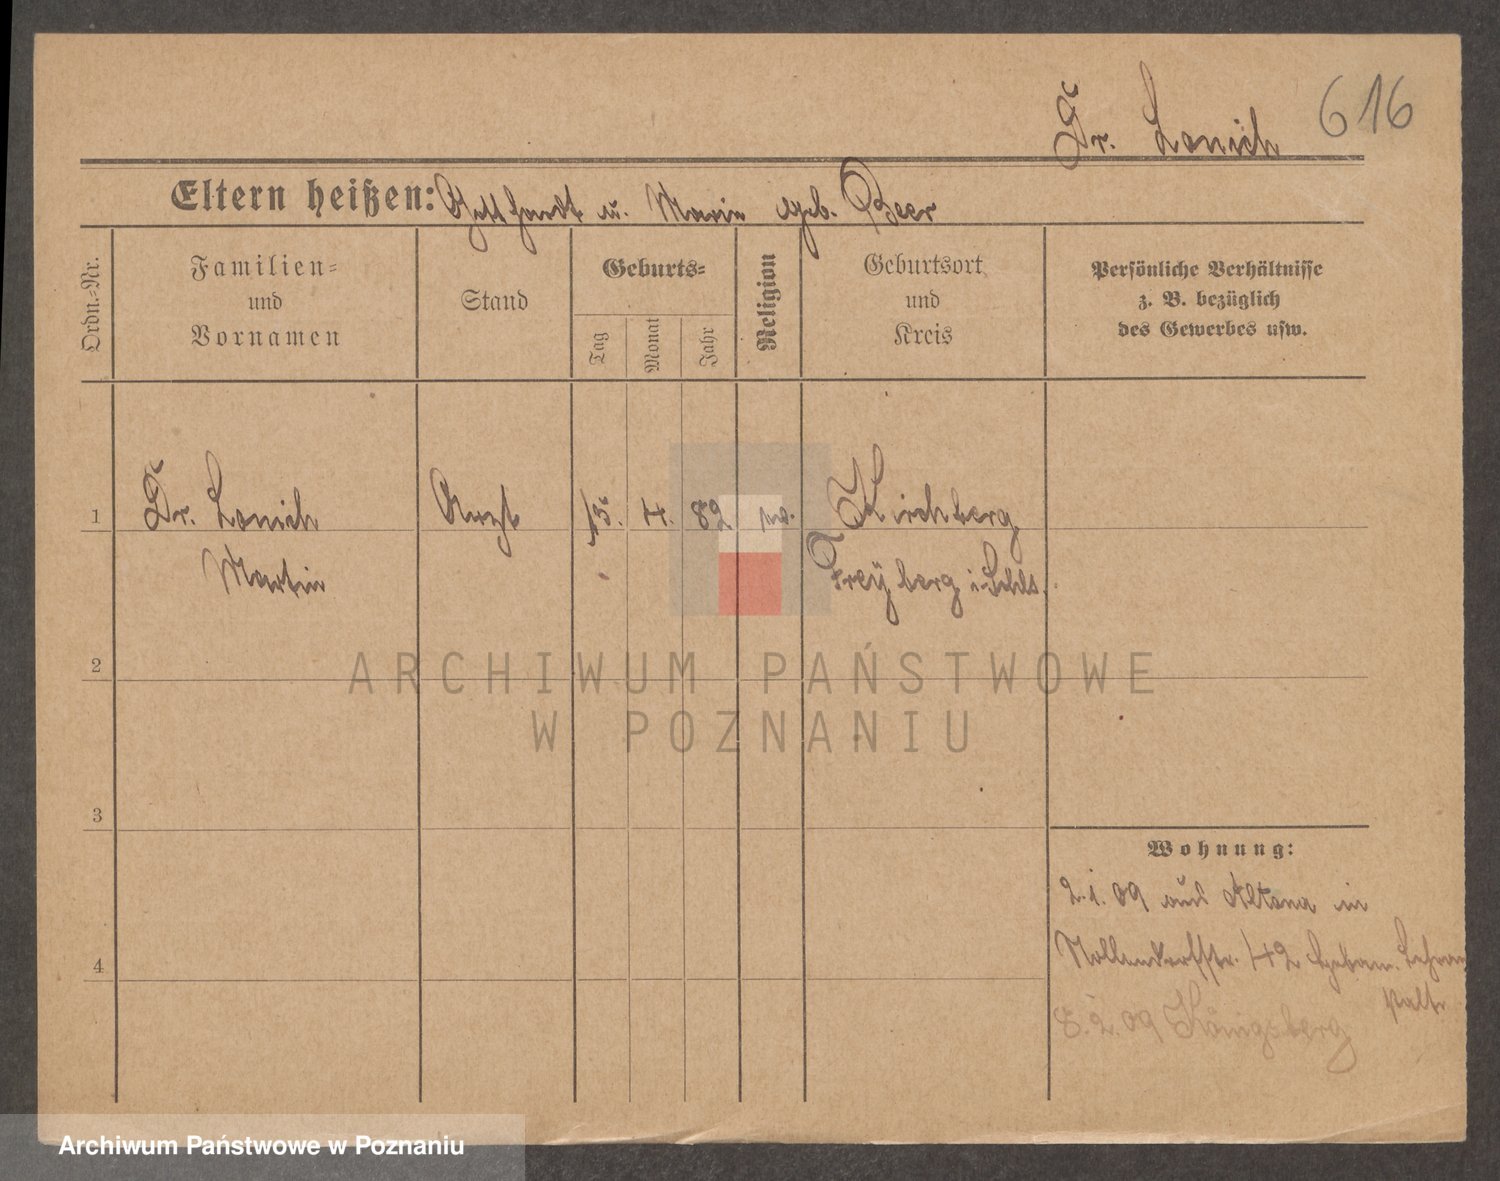 616
Dr. Lonich
Eltern heißen: Gotthardt u. Marie geb. Beer
Ordn.-Nr.
Familien-
und
Vornamen
Stand
Geburts-
Tag
Monat
Jahr
Religion
Geburtsort
und
Kreis
Persönliche Verhältnisse
z. B. bezüglich
des Gewerbes usw.
1
Dr. Lonich
Martin
Arzt
15. 4. 82
Kirchberg
Freyberg i.
2
3
4
Wohnung:
2.1.09 aus Altona in
Nollendorfstr. 42 Hebam. Lehran
stalt
8.2.09 Königsberg
ARCHIWUM PAŃSTWOWE
W POZNANIU
Archiwum Państwowe w Poznaniu